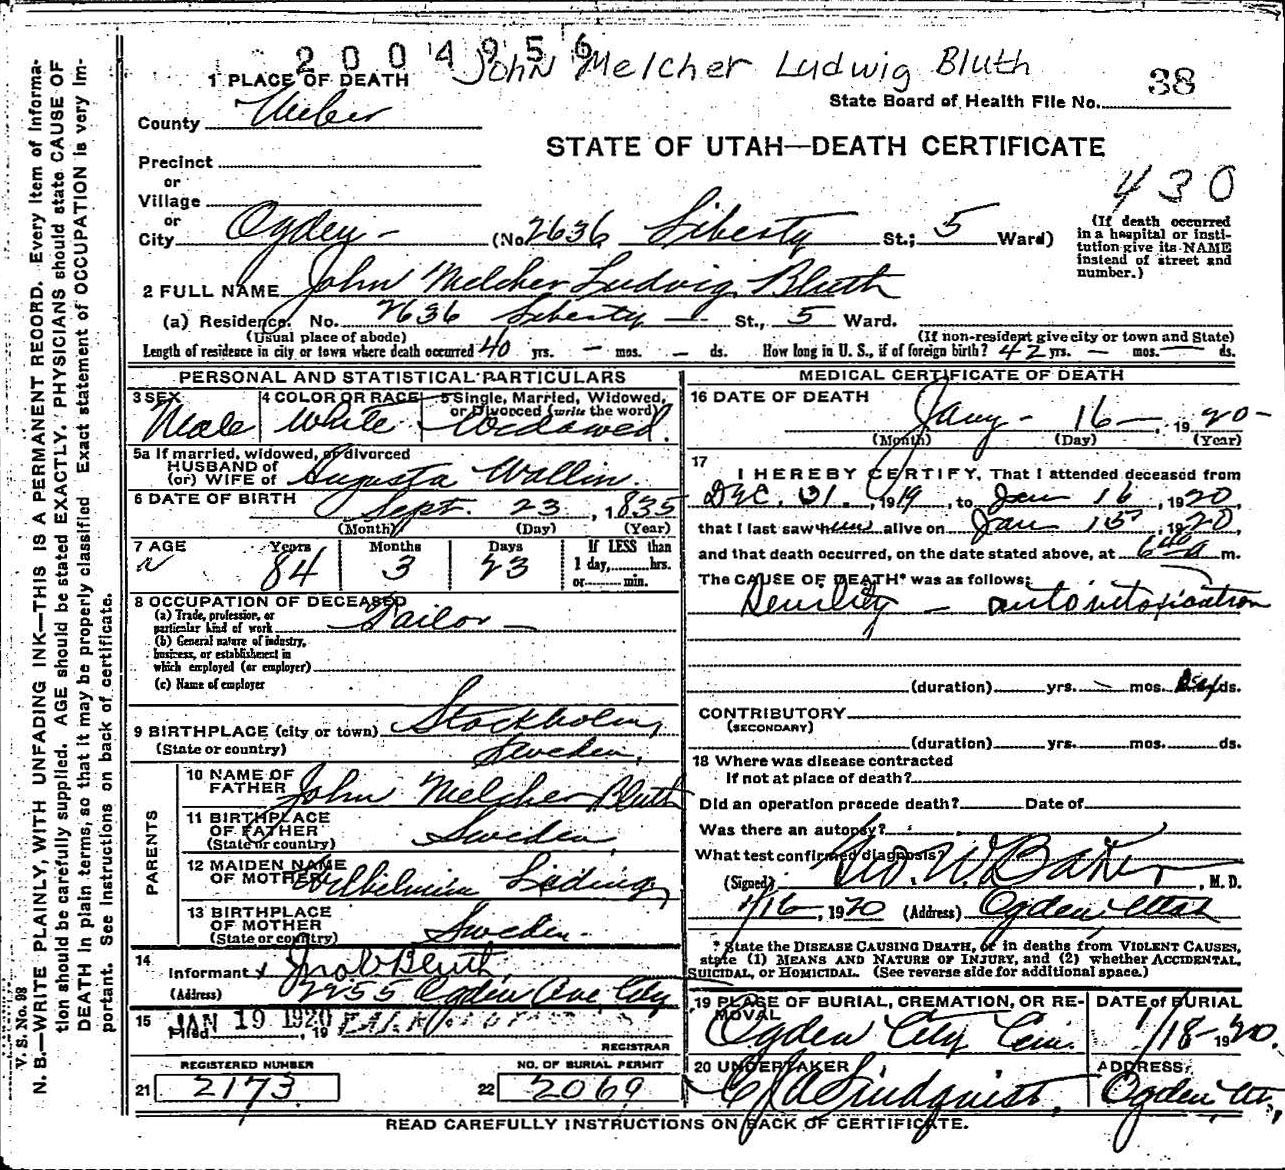 2004956
John Melcher Ludwig Bluth
38
State Board of Health File No.
1 PLACE OF DEATH
County Weber
STATE OF UTAH—DEATH CERTIFICATE
Precinct
or
Village
430
or
City Ogden - (No. 2636 Liberty St.; 5 Ward)
(If death occurred in a hospital or institution give its NAME instead of street and number.)
2 FULL NAME John Melcher Ludwig Bluth
(a) Residence. No. 2636 Liberty — St., 5 Ward.
(Usual place of abode)
(If non-resident give city or town and State)
Length of residence in city or town where death occurred 40 yrs. — mos. — ds. How long in U. S., if of foreign birth? 42 yrs. — mos. — ds.
PERSONAL AND STATISTICAL PARTICULARS
3 SEX
Male
4 COLOR OR RACE
White
5 Single, Married, Widowed, or Divorced (write the word)
Widowed.
5a If married, widowed, or divorced
HUSBAND of
(or) WIFE of Augusta Wallin.
6 DATE OF BIRTH Sept. 23, 1835
(Month) (Day) (Year)
7 AGE
Years Months Days
84 3 23
If LESS than
1 day, hrs.
or min.
8 OCCUPATION OF DECEASED
(a) Trade, profession, or
particular kind of work Tailor —
(b) General nature of industry,
business, or establishment in
which employed (or employer)
(c) Name of employer
9 BIRTHPLACE (city or town) Stockholm,
(State or country) Sweden,
PARENTS
10 NAME OF
FATHER John Melcher Bluth
11 BIRTHPLACE
OF FATHER
(State or country) Sweden,
12 MAIDEN NAME
OF MOTHER Wilhelmin Ludwig
13 BIRTHPLACE
OF MOTHER
(State or country) Sweden.
14
Informant x Jno V Bluth,
(Address) 2255 Ogden Ave City
15
Filed JAN 19 1920, 19
REGISTRAR
REGISTERED NUMBER
21 2173
NO. OF BURIAL PERMIT
22 2069
MEDICAL CERTIFICATE OF DEATH
16 DATE OF DEATH Jany - 16 —, 1920 -
(Month) (Day) (Year)
17
I HEREBY CERTIFY, That I attended deceased from
DEC. 31., 1919, to Jan 16, 1920,
that I last saw him alive on Jan 15, 1920,
and that death occurred, on the date stated above, at m.
The CAUSE OF DEATH* was as follows:
Senility — autointoxication
(duration) yrs. mos. ds.
CONTRIBUTORY
(SECONDARY)
(duration) yrs. mos. ds.
18 Where was disease contracted
if not at place of death?
Did an operation precede death? Date of
Was there an autopsy?
What test confirmed diagnosis?
(Signed) Geo. W. Baker, M. D.
1/16, 1920 (Address) Ogden, Utah
* State the DISEASE CAUSING DEATH, or in deaths from VIOLENT CAUSES,
state (1) MEANS AND NATURE OF INJURY, and (2) whether ACCIDENTAL,
SUICIDAL, or HOMICIDAL. (See reverse side for additional space.)
19 PLACE OF BURIAL, CREMATION, OR REMOVAL
Ogden City Cem.
DATE of BURIAL
1/18-1920.
20 UNDERTAKER
C J A Lindquist,
ADDRESS
Ogden, Ut,
READ CAREFULLY INSTRUCTIONS ON BACK OF CERTIFICATE.
V. S. No. 98
N. B.—WRITE PLAINLY, WITH UNFADING INK—THIS IS A PERMANENT RECORD. Every item of informa-
tion should be carefully supplied. AGE should be stated EXACTLY. PHYSICIANS should state CAUSE OF
DEATH in plain terms, so that it may be properly classified. Exact statement of OCCUPATION is very im-
portant. See instructions on back of certificate.